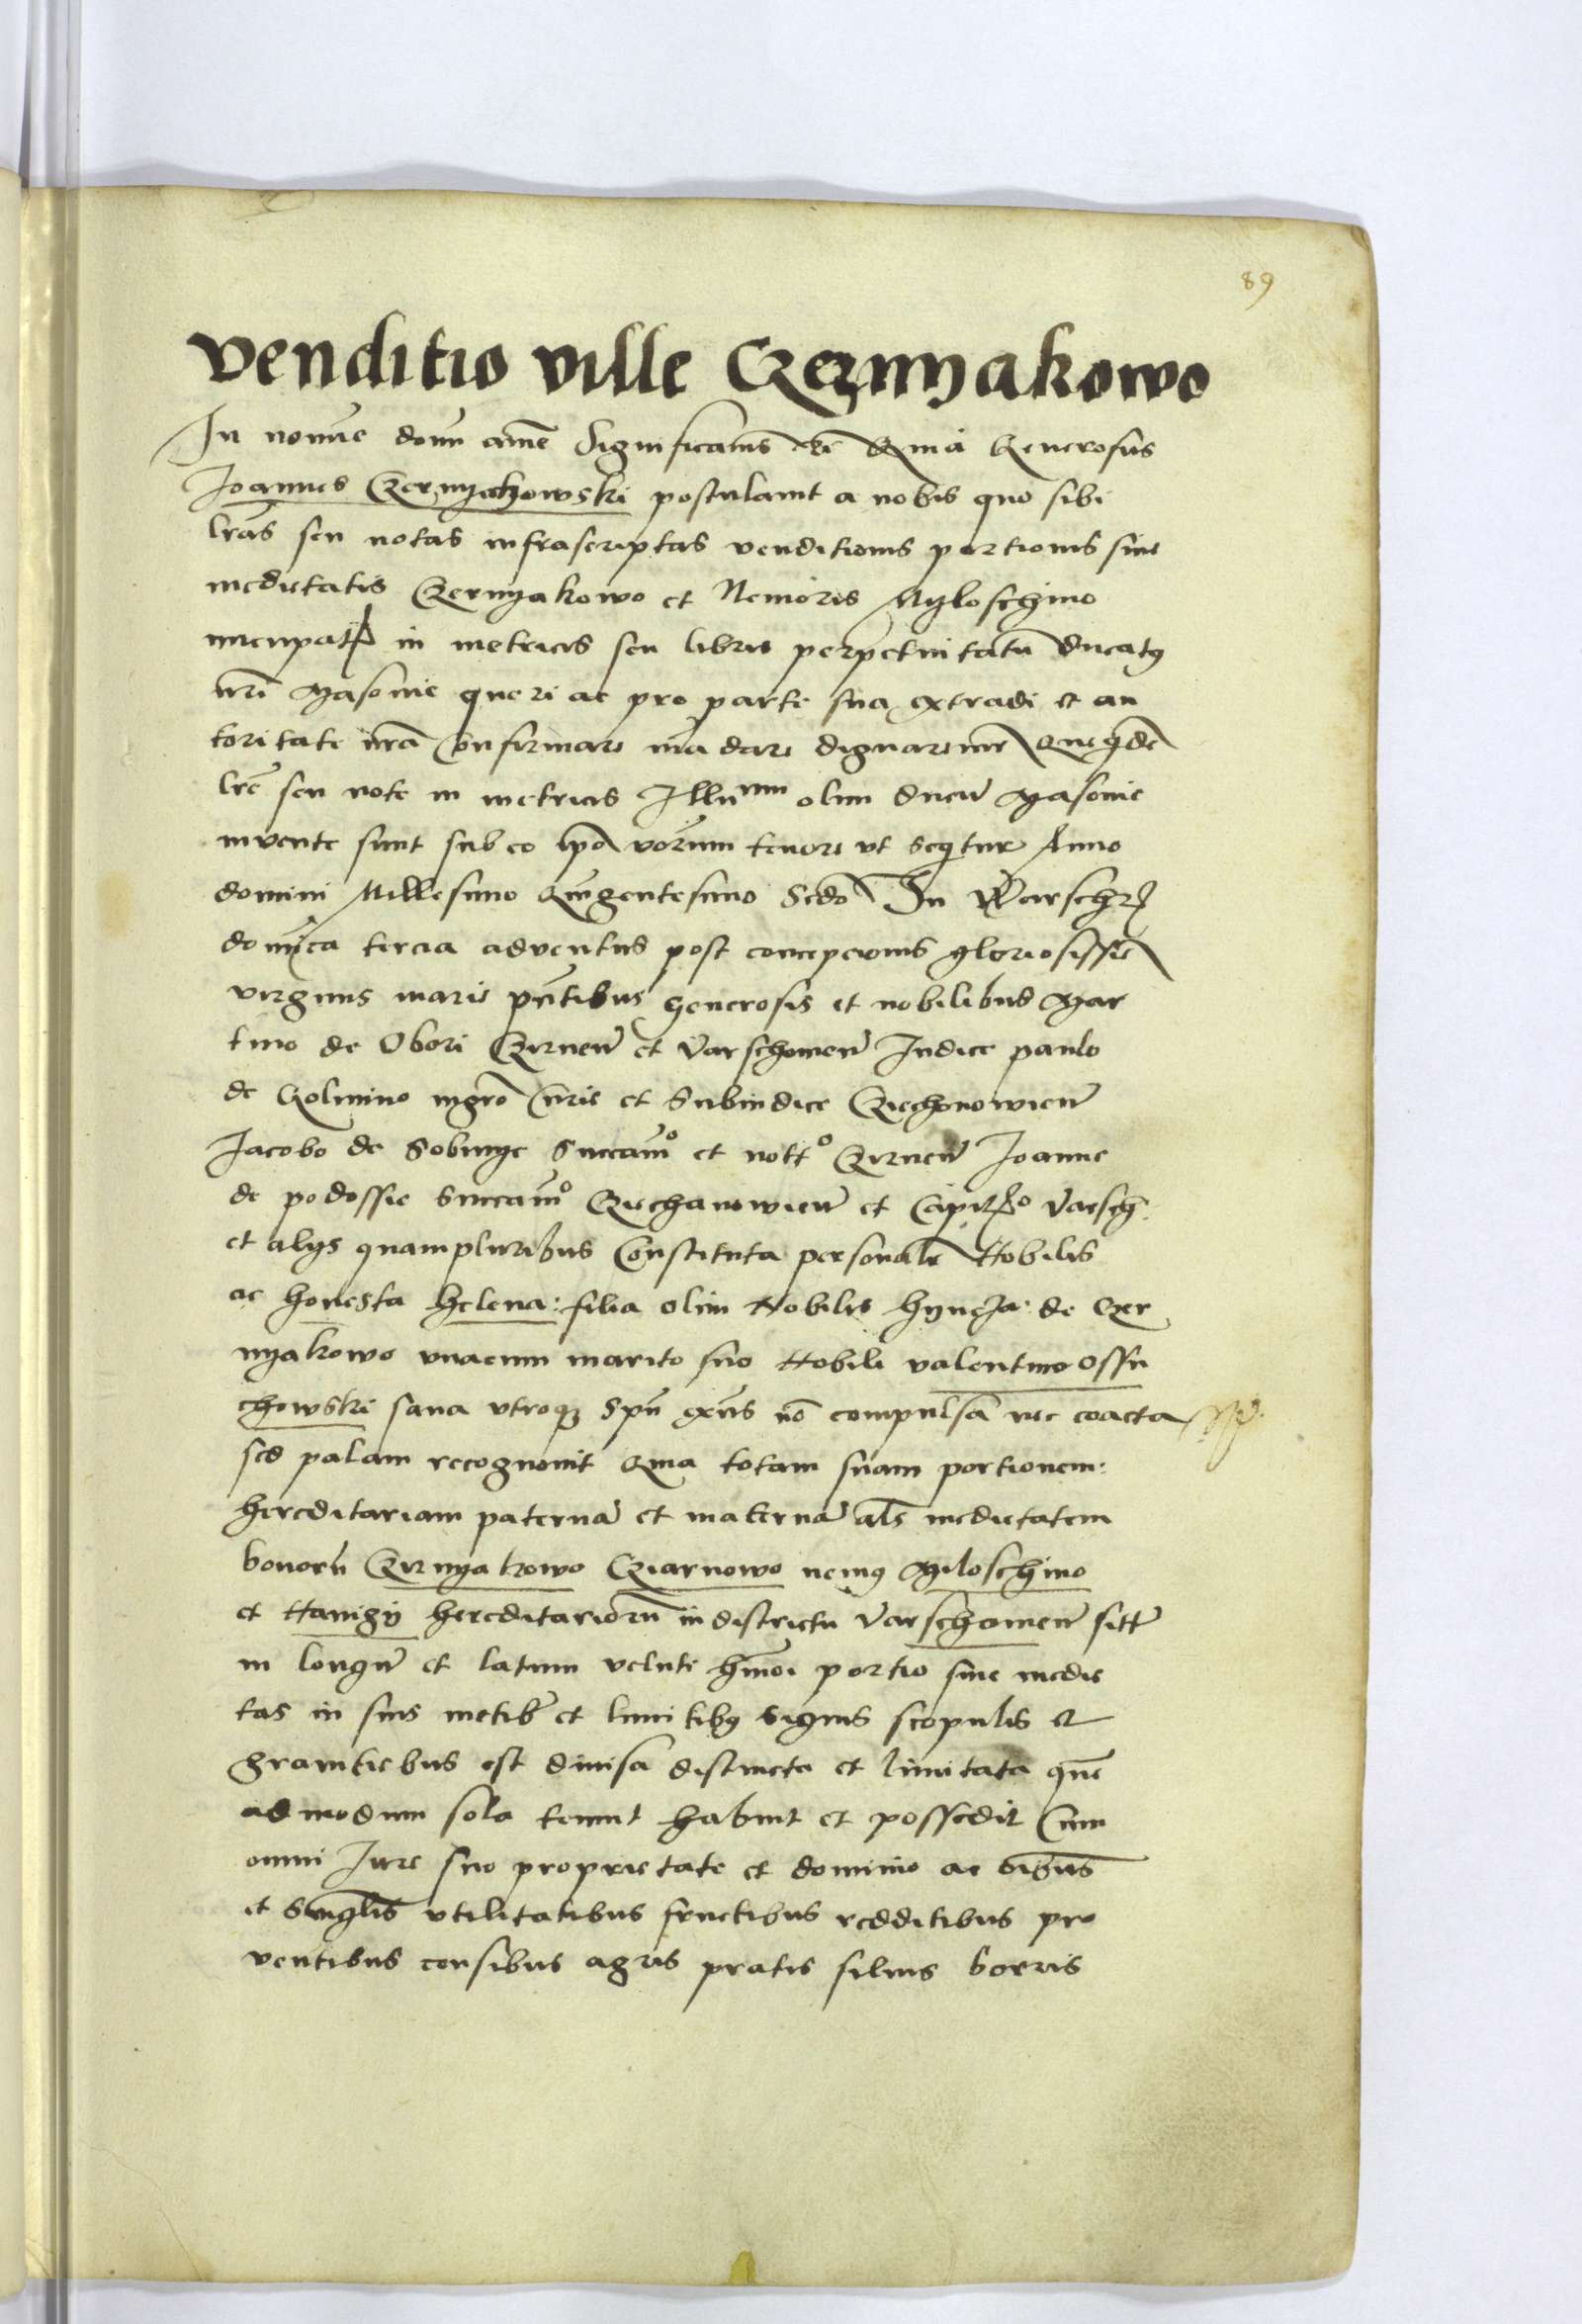 89
Venditio ville Czernyakowo
In noīe domī amē Significamus &c Quia Generosus
Joannes Czernyakowski postulauit a nobis quo sibi
lrās seu notas infrascriptas venditionis portionis siue
medietatis Czernyakowo et Nemoris Myloschino
nuncupat in metricis seu libris perpetuitatū ducatꝯ
nrī Masouie queri ac pro parte sua extradi et au
toritate nrā Confirmare mādare dignaremr Queqdē
lrē seu note in metricis Illūrum olim ducū Masouie
invente sunt sub eo ipō vorum tenore vt seqitur Anno
domini Millesimo Quīgentesimo Scdo In Warsch
domīca tercia adventus post concepcionis gloriosissīe
virginis marie pntibus Generosis et nobilibus Mar
tino de Obori Czirnen et Varschouien Judice paulo
de Golmino mgrō Curie et Subiudice Cziechonowien
Jacobo de Sobinye Succamo et notto Czirnen Joanne
de podossie Succamo Cziechanowien et Capito Varsch
et alijs quampluribus Constituta personalr Nobilis
ac honesta helena: filia olim Nobilis hyncza de Czer
nyakowo vnacum marito suo Nobili valentino Ossu
chowski sana vtroqꝫ Spū exns nō compulsa nec coacta
sed palam recognouit Quia totam suam portionem:
hereditariam paternā et maternā als medietatem
bonorū Czirnyakowo Cziarnowo nemꝯ Miloschino
et Hanigy hereditariorū in districtu Varschouien sitt
in longū et latum velute hmōi portio siue medie
tas in suis metib et limitibꝯ signis scopulis et
graniciebus est diuisa distincta et limitata quē
admodum sola tenuit habuit et possedit Cum
omni Jure suo proprietate et dominio ac oībus
et Singlis vtilitatibus fructibus redditibus pro
ventibus censibus agris pratis siluis borris